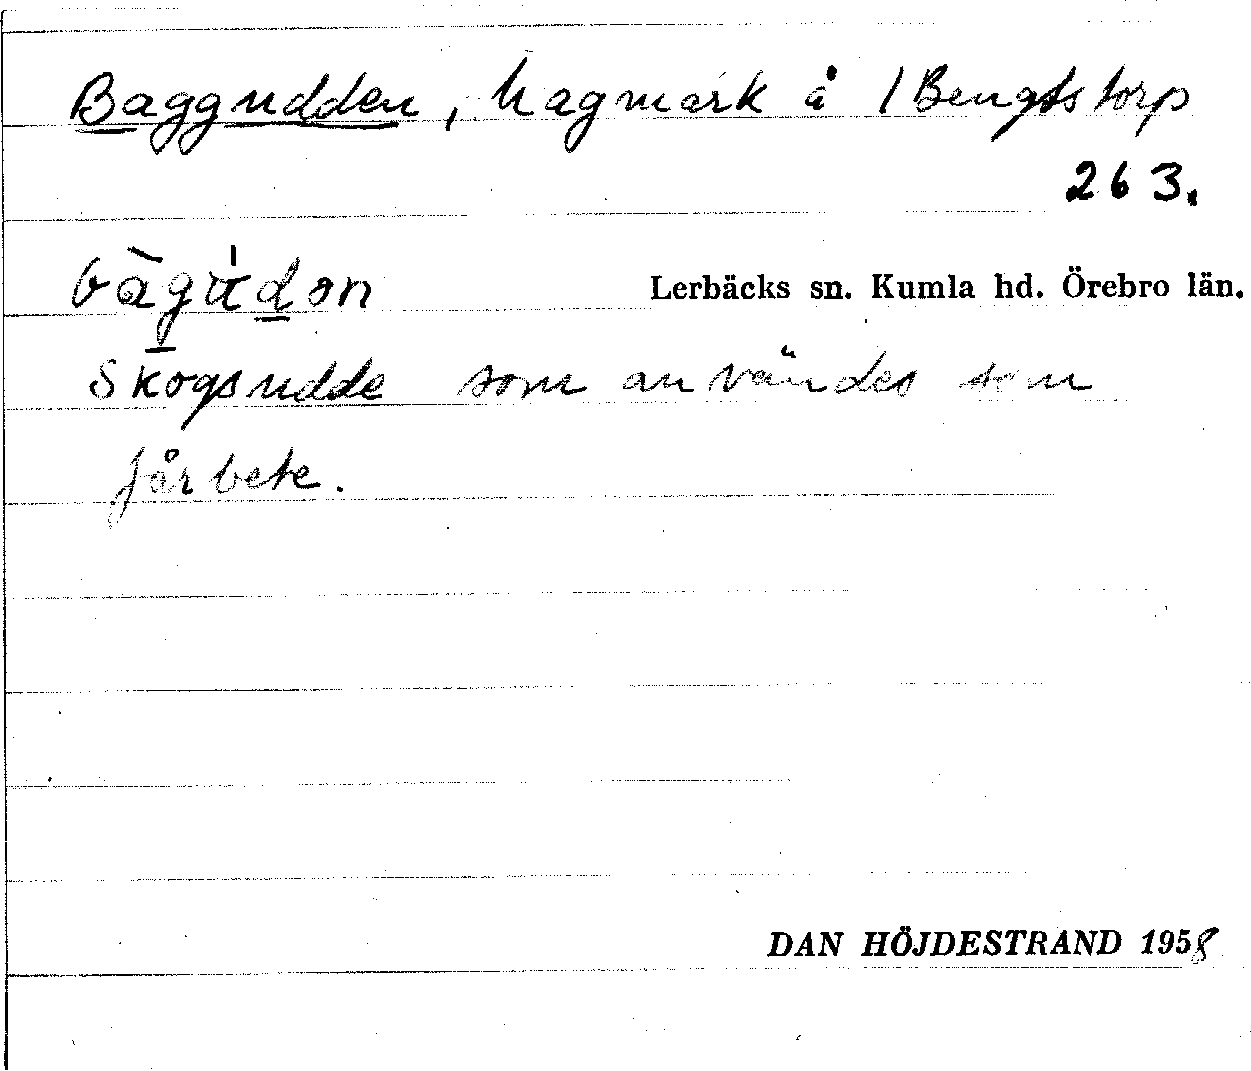 Baggudden, hagmark å 1 Bengtstorp
263.
bàgùdən Lerbäcks sn. Kumla hd. Örebro län.
Skogsudde som användes som
fårbete.
DAN HÖJDESTRAND 1958